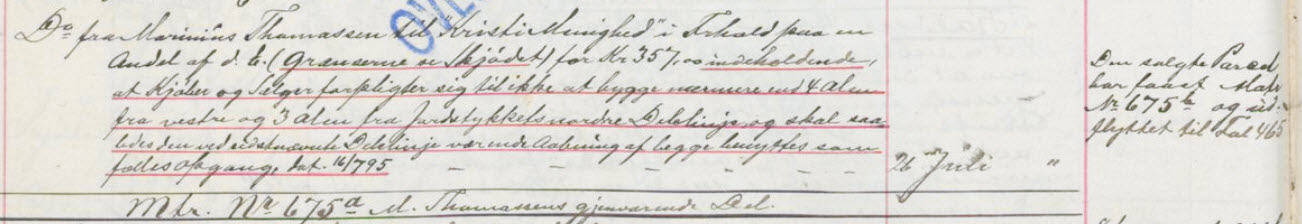 Do fra Marinius Thomassen til "Kristi Menighed" i Trhald paa en
Andel af d. E. (Grænserne se Skjødet) for Kr 357,00 indeholdende,
at Kjøber og Sælger forpligter sig til ikke at bygge nærmere end 4 Alen
fra vestre og 3 Alen fra Jordstykkets nordre Delelinje og skal saa-
ledes den ved sidstnævnte Delelinje værende Aabning af begge benyttes som
fælles Opgang, dat. 16/7 95 - - - - - - 26 Juli "
Mtr. Nr 675a M. Thomassens gjenværende Del.
Den solgte Parcel
har faaet Matr
Nr 675b og ud-
flyttet til Fol 465